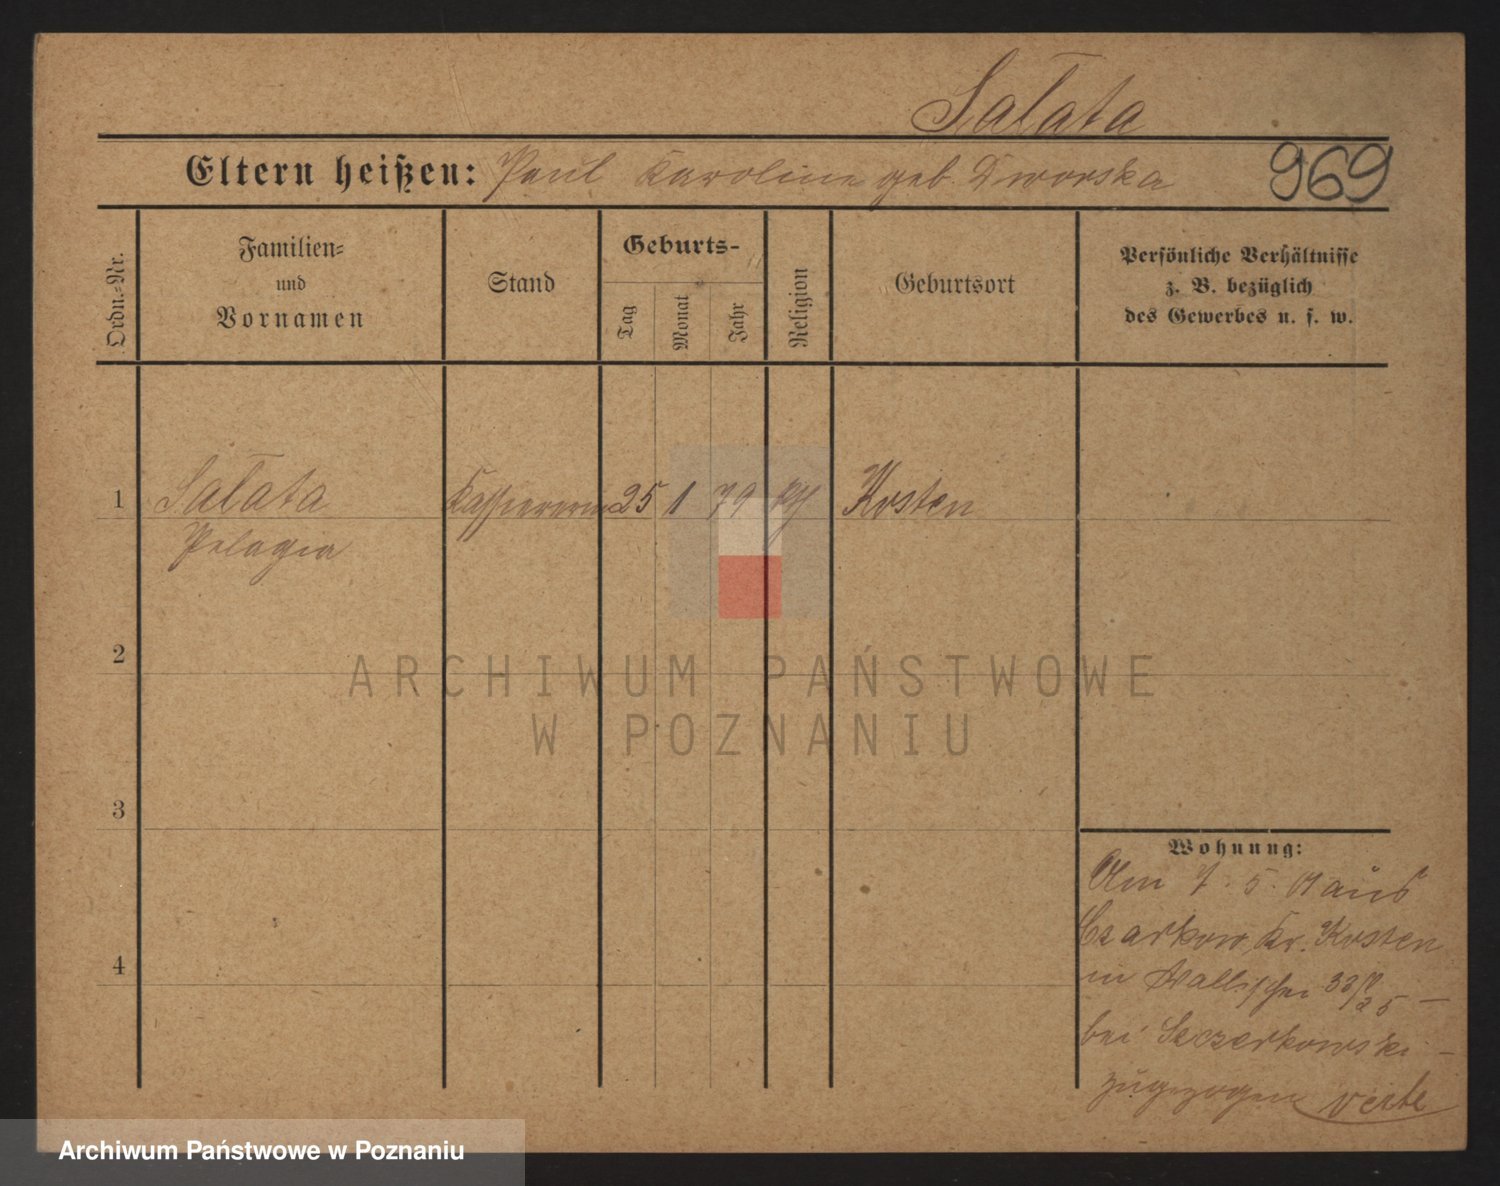 Sałata
Eltern heißen: Paul Karoline geb. Dworska
969
Ordn.-Nr.
Familien-
und
Vornamen
Stand
Geburts-
Tag
Monat
Jahr
Religion
Geburtsort
Persönliche Verhältnisse
z. B. bezüglich
des Gewerbes u. s. w.
1 Sałata Kassiererin 25 1 79 kth Kosten
Pelagia
2
3
4
Wohnung:
Am 7. 5. 01 aus
Czarkow, Kr. Kosten
in Wallischei 38/
bei Szczerkowski -
zugezogen verte
ARCHIWUM PAŃSTWOWE
W POZNANIU
Archiwum Państwowe w Poznaniu